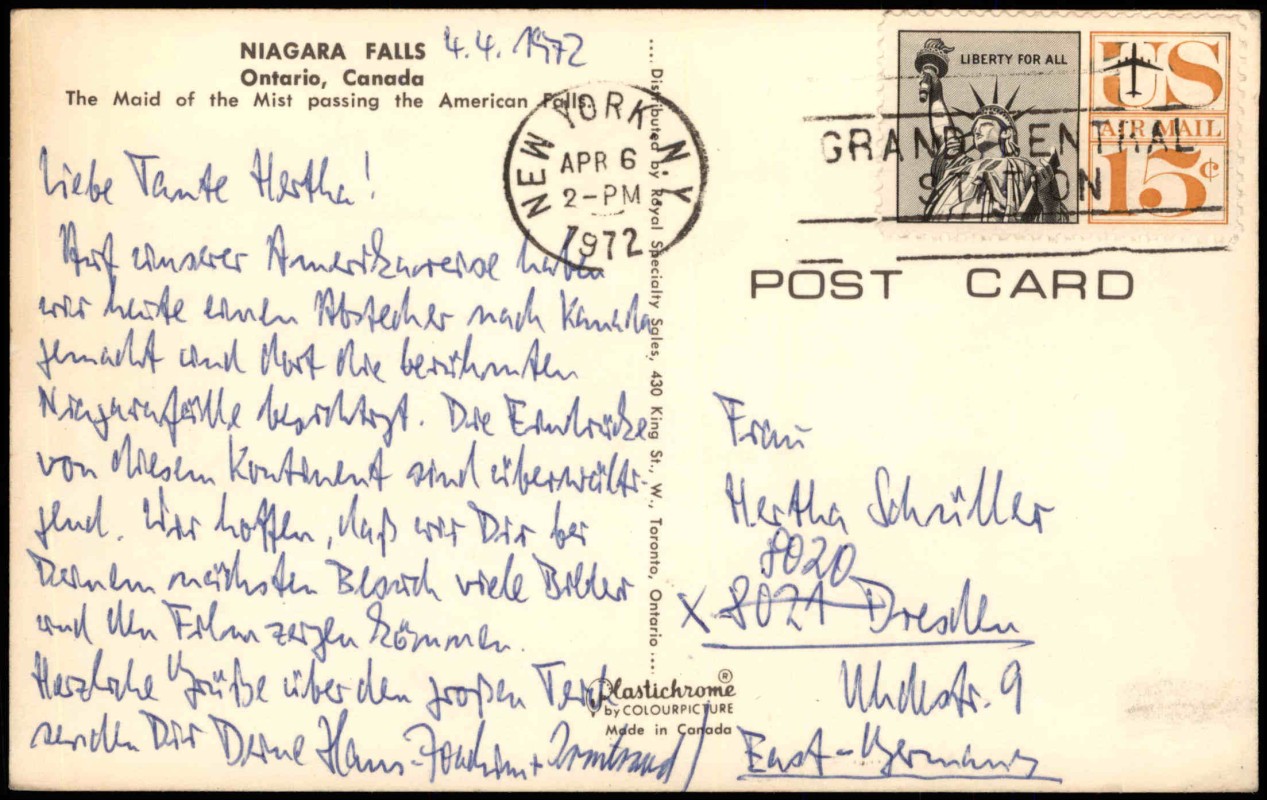 NIAGARA FALLS
Ontario, Canada
The Maid of the Mist passing the American Falls.
4.4. 1972
Liebe Tante Hertha!
Auf unserer Amerikareise haben
wir heute einen Abstecher nach Kanada
gemacht und dort die berühmten
Niagarafälle besichtigt. Die Eindrücke
von diesem Kontinent sind überwälti-
gend. Wir hoffen, daß wir Dir bei
Deinem nächsten Besuch viele Bilder
und den Film zeigen können.
Herzliche Grüße über den großen Teich
senden Dir Deine Hans-Joachim + Irmtraud
.... Distributed by Royal Specialty Sales, 430 King St., W., Toronto, Ontario ....
NEW YORK N.Y
APR 6
2-PM
1972
GRAND CENTRAL
STATION
LIBERTY FOR ALL
US
AIR MAIL
15¢
POST CARD
Frau
Hertha Schüller
8020
X 8021 Dresden
Uhdestr. 9
East-Germany
Plastichrome®
by COLOURPICTURE
Made in Canada